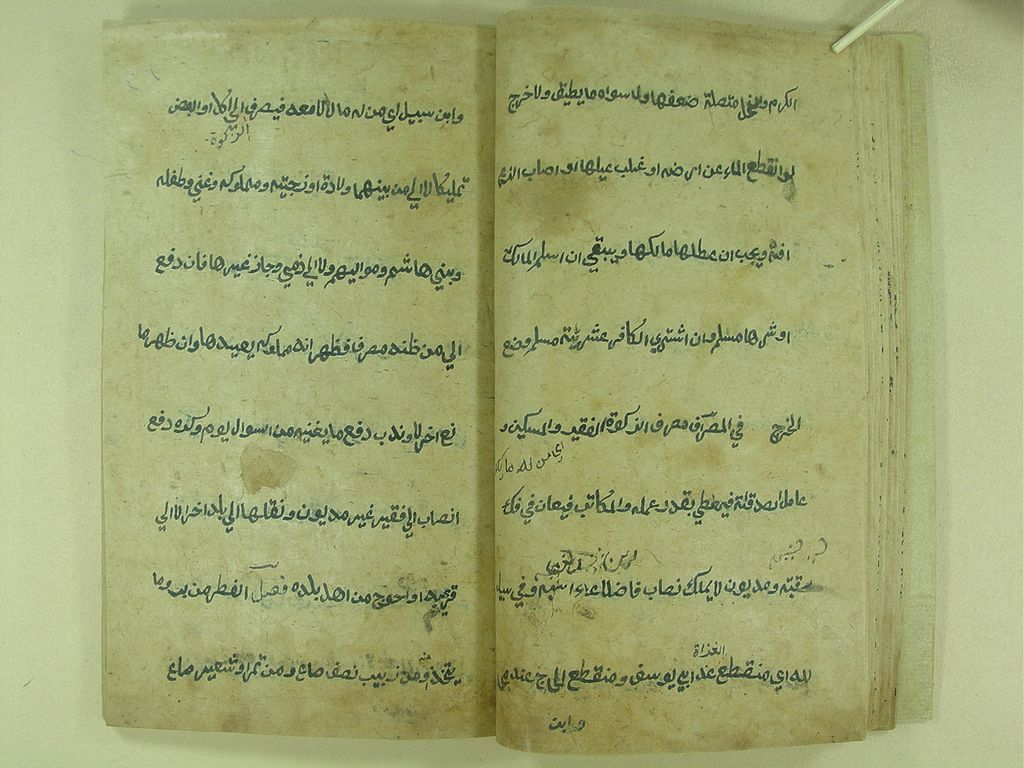 الكرم والنخل متصلة ضعفها ولما سواه ما يطيق ولا خرج
لو انقطع الماء عن ارضه او غلب عليها او اصاب الزرع
افة ويجب ان عطلها مالكها ويبقي ان اسلم المالك
او شراها مسلم وان اشتري الكافر عشرية مسلم وضع
الخرج في المصرف مصرف الزكوة الفقير والمسكين و
اي من له ما
عامل الصدقة فيعطي بقدر عمله والمكاتب فيعان في فك
رقبته ومديون لا يملك نصاب فاضلا عن دينه وفي سبيل
الغزاة
الله اي منقطع عند ابي يوسف ومنقطع الحاج عند
وابن
وابن سبيل اي من له مال لا معه فيصرف الي الكل او البعض
الزكوة
تمليكا لا الي من بينهما ولادة او زوجية ومملوكه وغني وطفله
وبني هاشم ومواليهم ولا الي ذمي وجاز غيرها فان دفع
الي من ظنه مصرف فظهر انه مملوكه يعيدها وان ظهر ما
نع اخر لا وندب دفع ما يغنيه من السوال يوم وكره دفع
انصاب الي فقير غير مديون ونقلها الي بلد اخر الا الي
قريبه او احوج من اهل بلده فصل الفطر من بر وما
منه
يتخذ ومن زبيب نصف صاع ومن تمر او شعير صاع